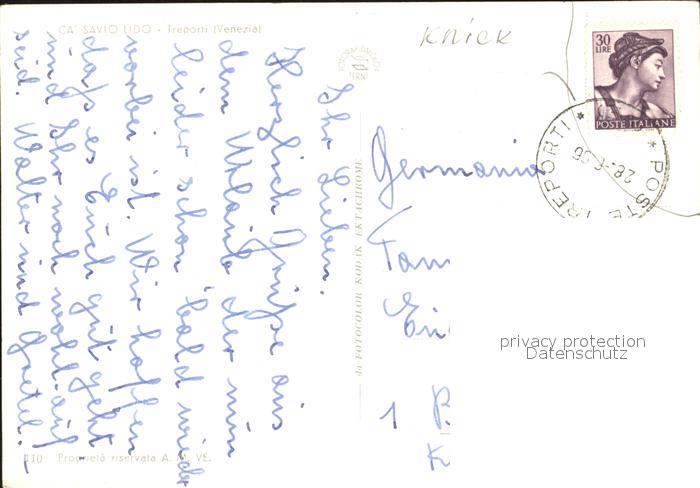 CA' SAVIO LIDO - Treporti (Venezia)
Knick
30
LIRE
POSTE ITALIANE
POSTE TREPORTI
28.-6-66
Ihr Lieben.
Herzlich Grüße aus
dem Urlaub der nun
leider schon bald wieder
vorbei ist. Wir hoffen
daß es Euch gut geht
und Ihr noch wohl auf
seid. Walter und Gretel.-
da FOTOCOLOR KODAK EKTACHROME
Germania
Fam
1
privacy protection
Datenschutz
130 Proprietà riservata A. M. VE.